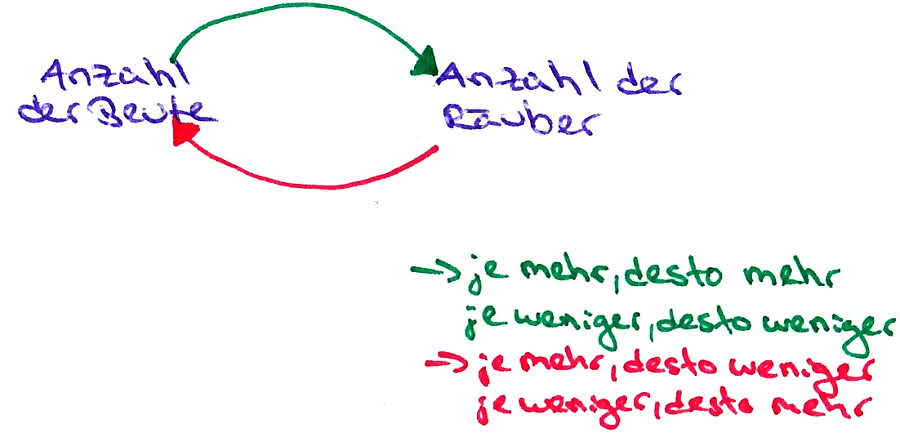 Anzahl
der Beute
Anzahl der
Räuber
→ je mehr, desto mehr
je weniger, desto weniger
→ je mehr, desto weniger
je weniger, desto mehr